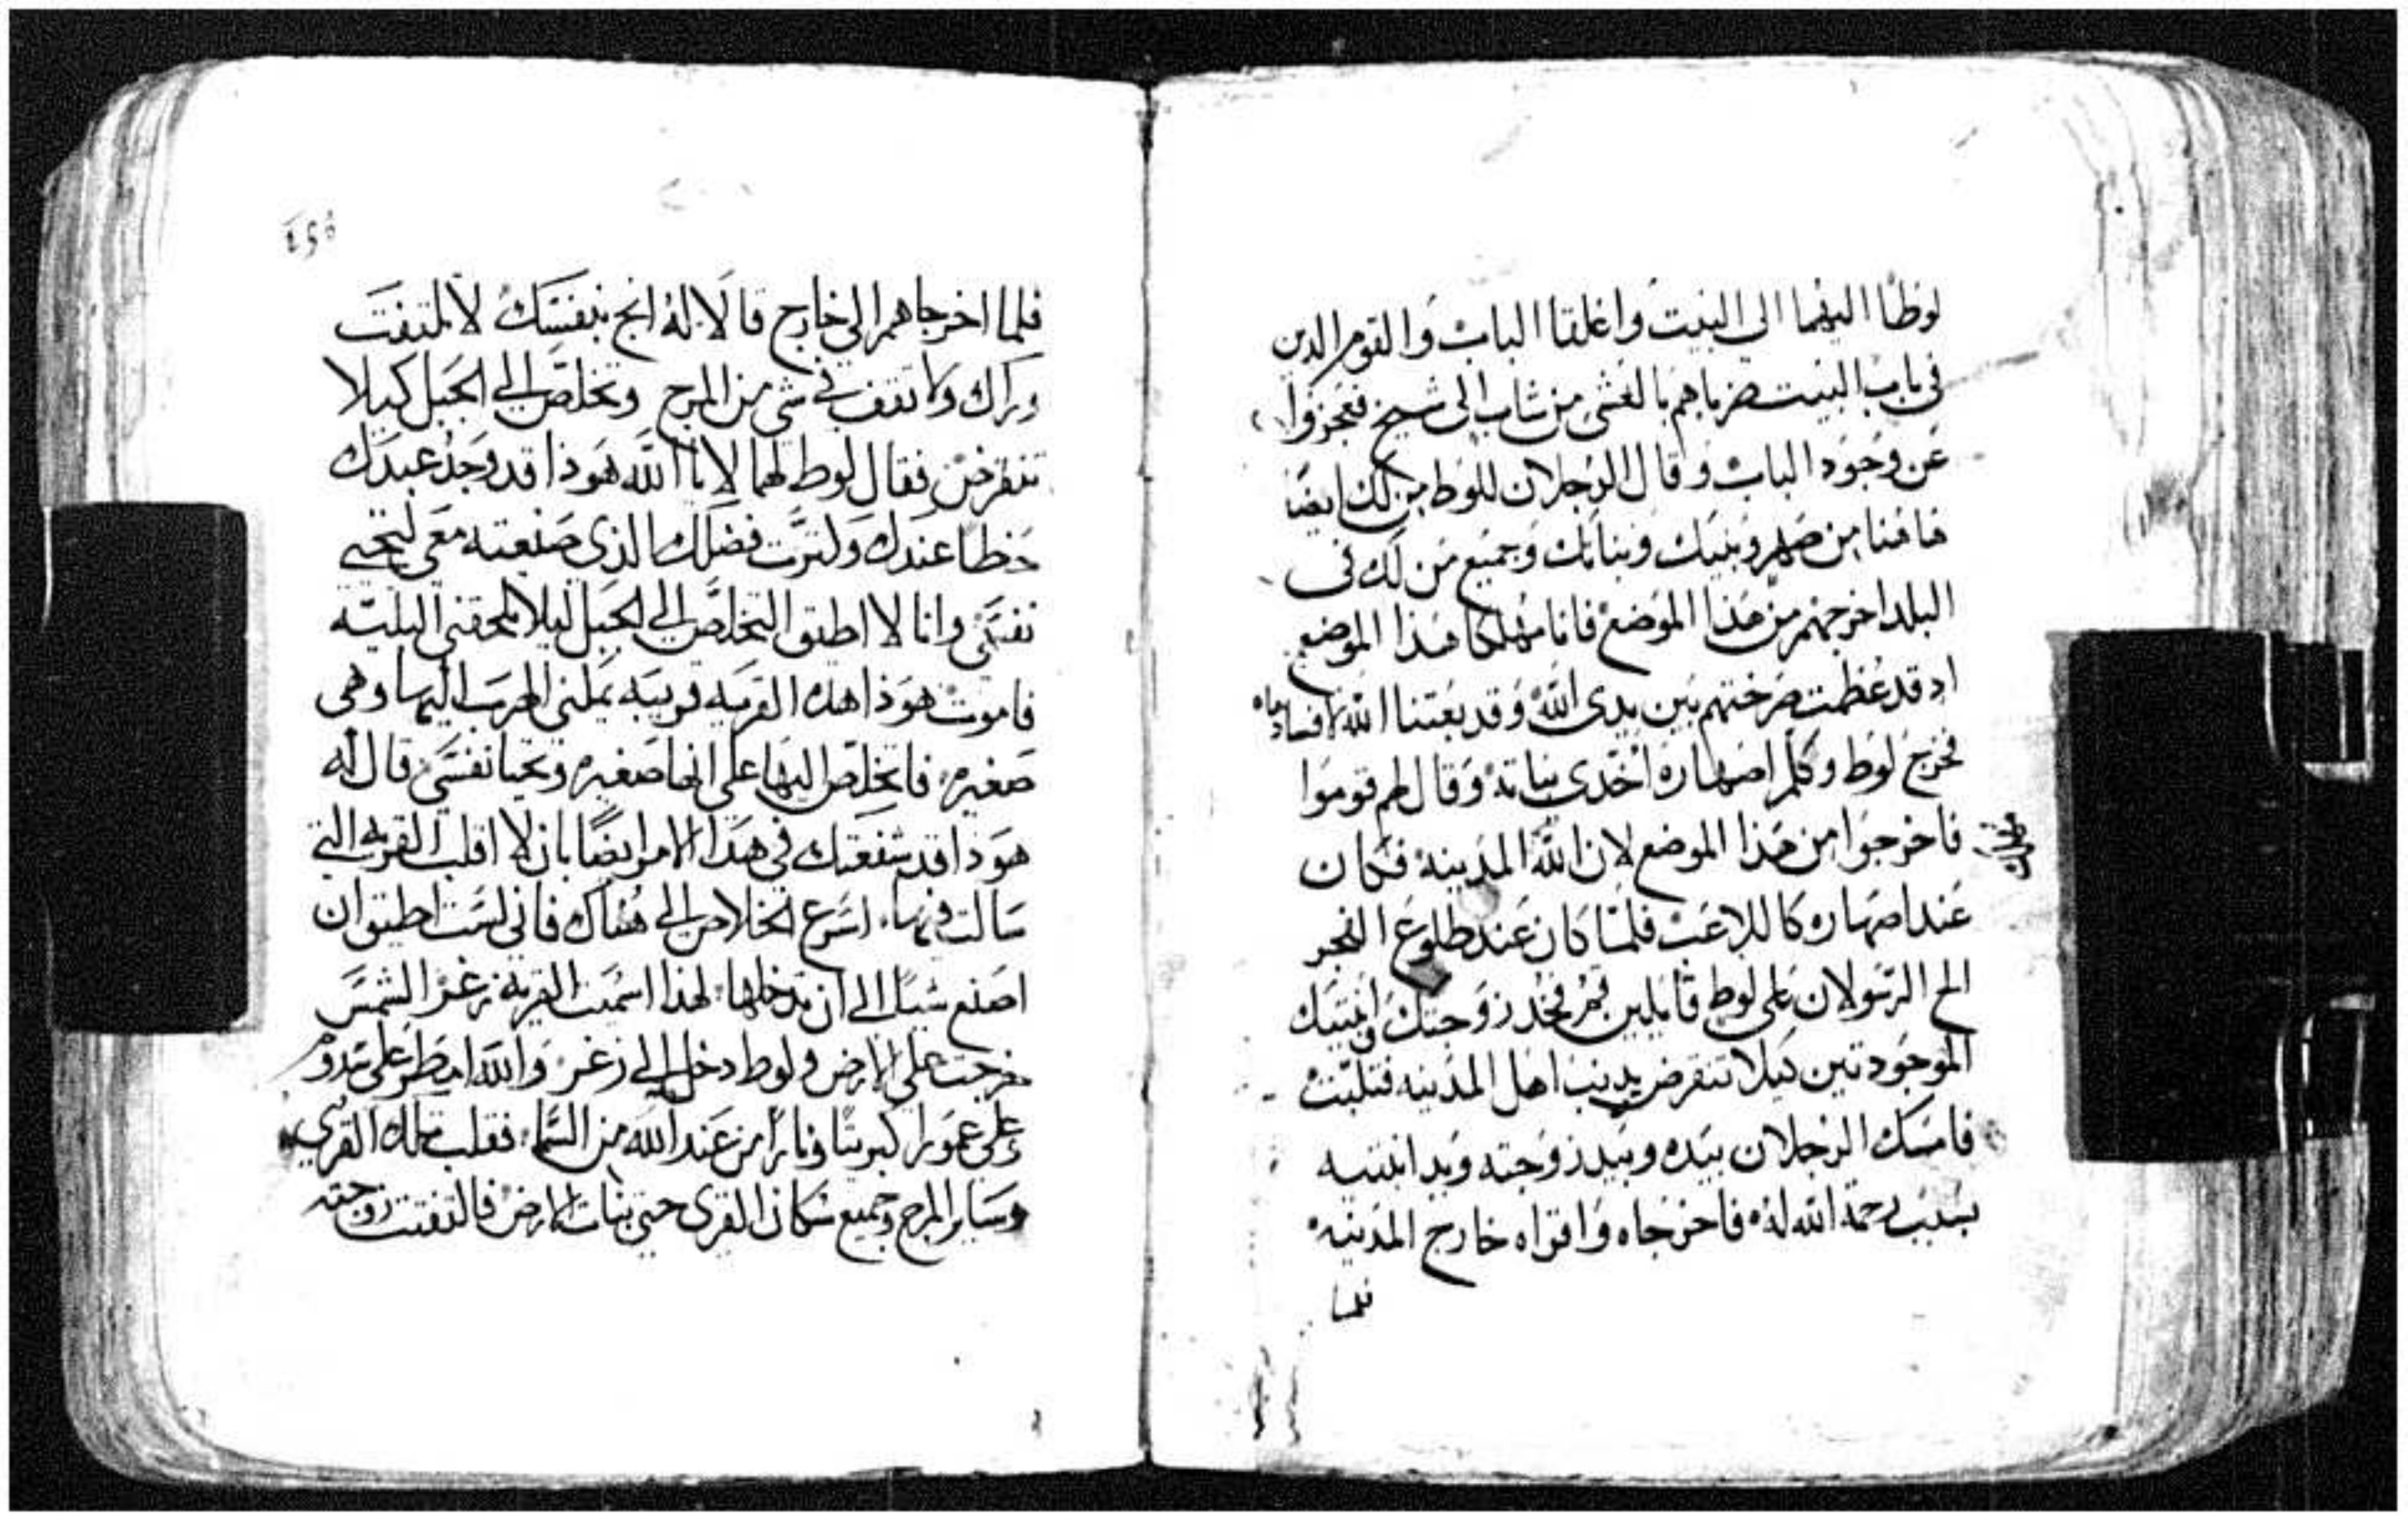 لوطا اليهما الى البيت واغلقا الباب والقوم الدين
في باب البيت ضرباهم بالغشى من شاب الى شيخ فعجزوا
عن وجود الباب وقال الرجلان للوط من لك ايضا
هاهنا من صهر وبنيك وبناتك وجميع من لك في
البلد اخرجهم من هذا الموضع فانا مهلكا هذا الموضع
اد قد عظمت صرختهم بين يدى الله وقد بعتنا الله لافسادها
فخرج لوط وكلم اصهاره اخدى بناته وقال لهم قوموا
فاخرجوا من هذا الموضع لان الله المدينة فكان
عند اصهاره كاللاعب فلما كان عند طلوع الفجر
الح الرسولان على لوط قايلين قم فخد زوجتك وابنتيك
الموجودتين كيلا تنقرض بدنب اهل المدينه فتلبت
فامسك الرجلان بيده وبيد زوجته ويد ابنتيه
بسبب رحمة الله له فاخرجاه واقراه خارج المدينه
فلما
فلما اخرجاهم الى خارج قالا له انج بنفسك لا تلتفت
وراك ولا تقف في شى من المرج وتخلص الى الجبل كيلا
تنقرض فقال لوط لهما لا يا الله هوذا قد وجد عبدك
حظا عندك ولترت فضلك الذى صنعته معى لتحيى
نفسى وانا لا اطيق التخلص الى الجبل ليلا تلحقني البليه
فاموت هوذا هده القريه قريبه يمكنى الهرب اليها وهى
صغيره فاتخلص اليها على انها صغيره وتحيا نفسى قال له
هودا قد شفعتك في هدا الامر ايضا بان لا اقلب القريه التي
سالت فيها اسرع الخلاص الى هناك فاني لست اطيق ان
اصنع شيا الى ان تدخلها لهذا اسميت القرية زغر الشمس
خرجت على الارض ولوط دخل الى زغر والله امطر على سدوم
وعلى عمورا كبريتا ونارا من عند الله من السما فقلب تلك القرى
وساير المرج وجميع سكان القرى حتى نبات الارض فالتفتت زوجته